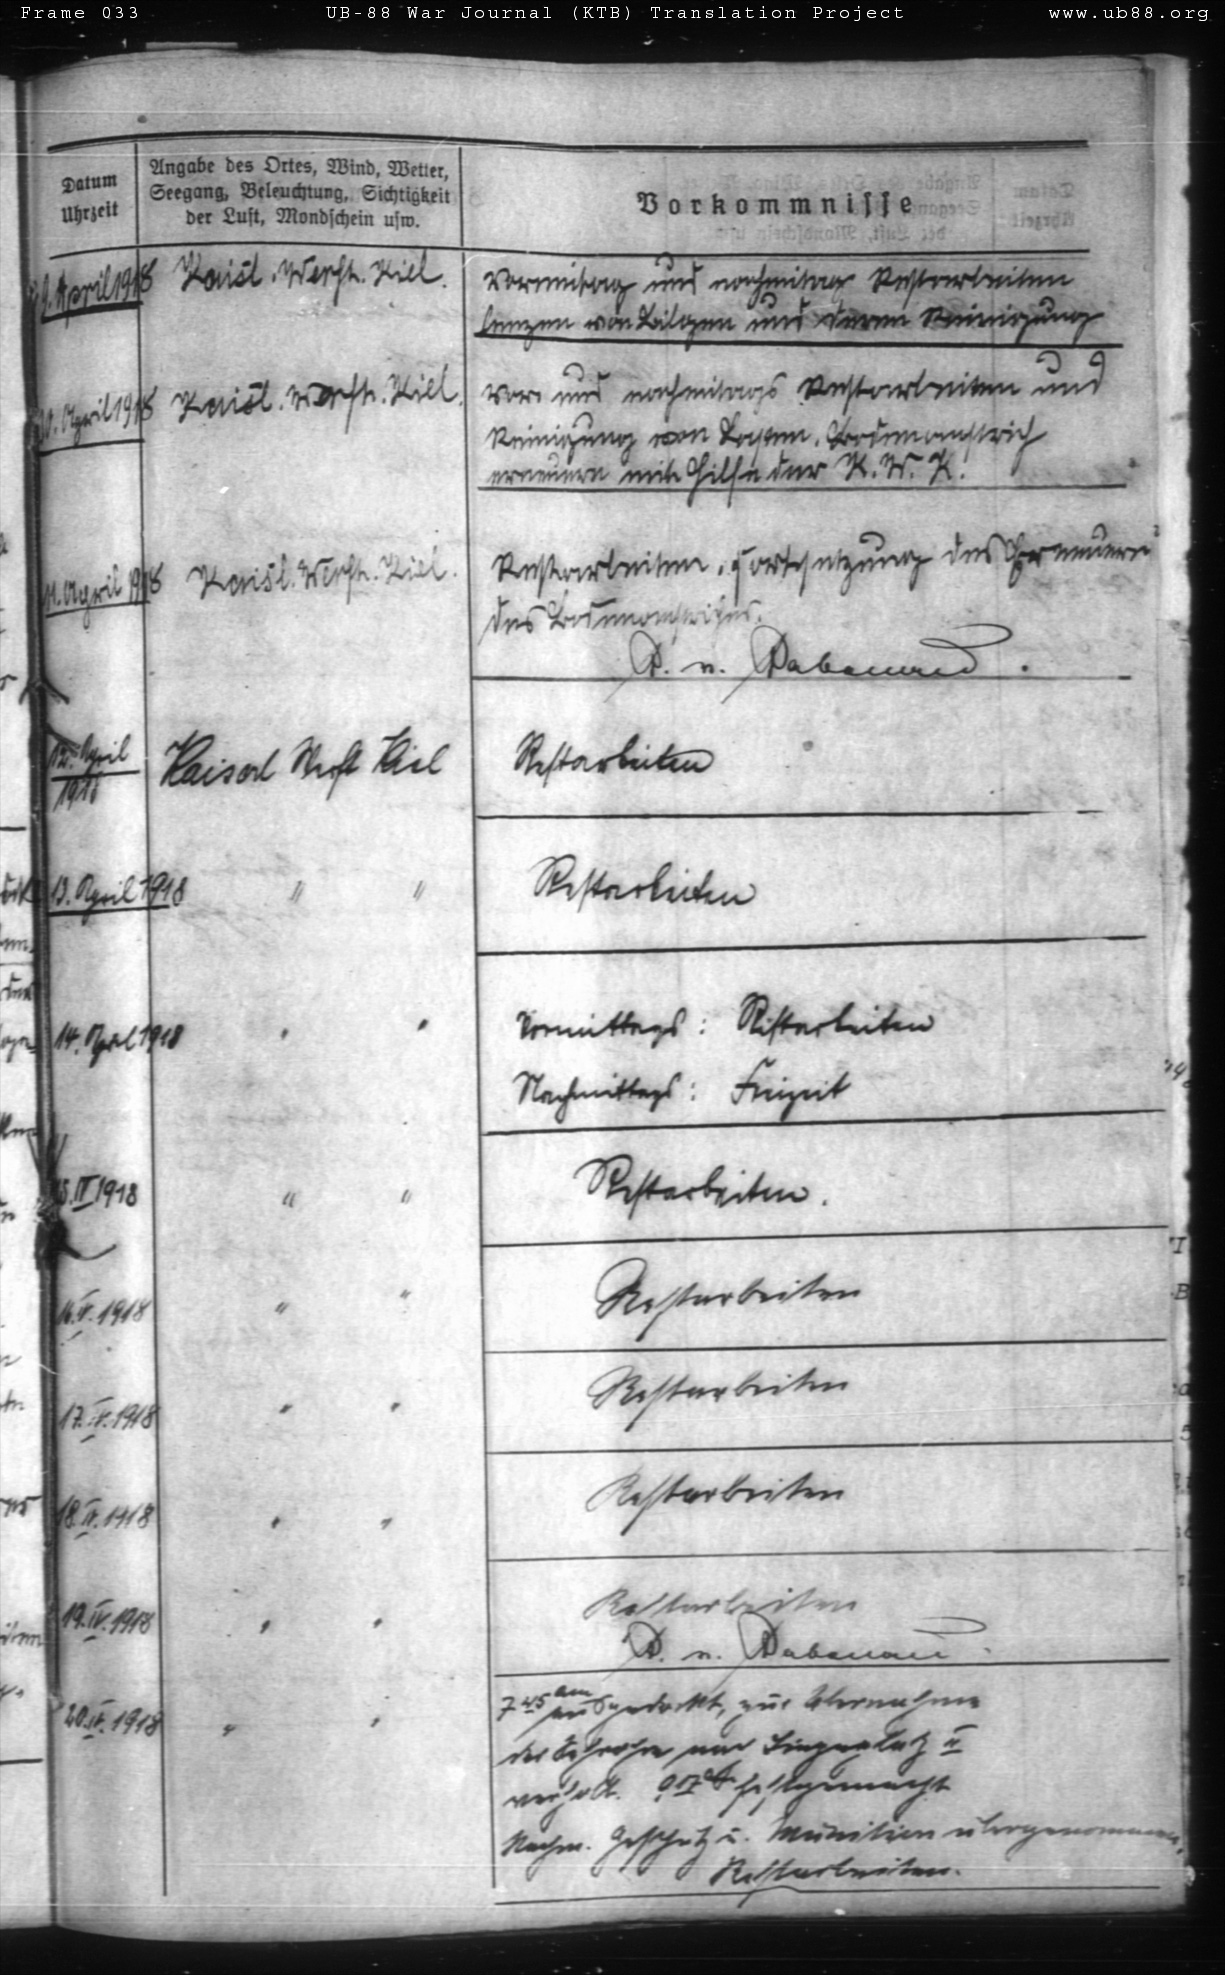 Frame 033 UB-88 War Journal (KTB) Translation Project www.ub88.org
Datum
Uhrzeit
Angabe des Ortes, Wind, Wetter,
Seegang, Beleuchtung, Sichtigkeit
der Luft, Mondschein usw.
Vorkommnisse
9. April 1918 Kaisl. Werft. Kiel. Vormitag und nachmitag Restarbeiten
lenzen von Bilgen und deren Reinigung
10. April 1918 Kaisl. Werft. Kiel. Vor- und nachmitags Restarbeiten und
Reinigung von Lasten. Bodenanstrich
erneuern mit Hilfe der K. W. K.
11. April 1918 Kaisl. Werft. Kiel. Restarbeiten. Fortsetzung des Erneuern
des Bodenanstriches.
R. v. Rabenau.
12. April
1918 Kaiserl Werft Kiel Restarbeiten
13. April 1918 " " Restarbeiten
14. April 1918 " " Vormittags: Restarbeiten
Nachmittags: Freizeit
15. IV 1918 " " Restarbeiten.
16. IV. 1918 " " Restarbeiten
17. IV. 1918 " " Restarbeiten
18. IV. 1918 " " Restarbeiten
19. IV. 1918 " " Restarbeiten
R. v. Rabenau.
20. IV. 1918 " " 7 45 am ausgedockt, zur Übernahme
der Sehrohre nach Liegeplatz II
verholt. festgemacht
Nachm. Geschütz u. Munition übergenommen.
Restarbeiten.